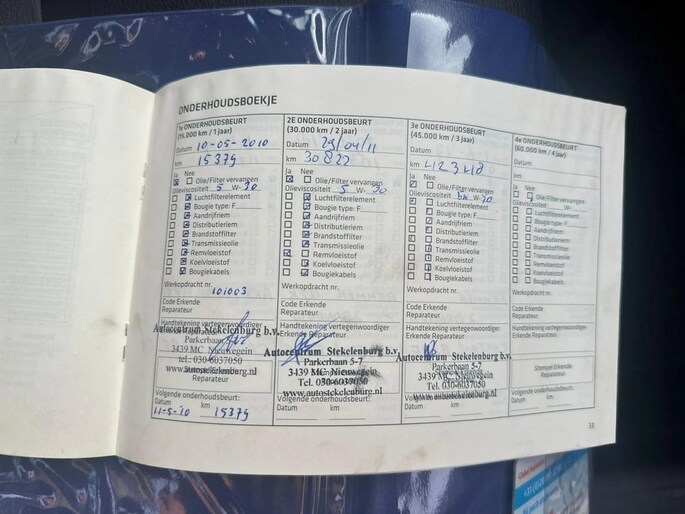 ONDERHOUDSBOEKJE
1e ONDERHOUDSBEURT
(15.000 km / 1 jaar)
Datum 10-05-2010
km 15379
Ja Nee
Olie/Filter vervangen
Olieviscositeit 5 W-30
Luchtfilterelement
Bougie type: F
Aandrijfriem
Distributieriem
Brandstoffilter
Transmissieolie
Remvloeistof
Koelvloeistof
Bougiekabels
Werkopdracht nr.
101003
Code Erkende
Reparateur
Handtekening vertegenwoordiger
Erkende Reparateur
Autocentrum Stekelenburg b.v.
Parkerbaan
3439 MC Nieuwegein
tel.: 030-6037050
Reparateur
Volgende onderhoudsbeurt:
Datum km
11-5-10 15379
2E ONDERHOUDSBEURT
(30.000 km / 2 jaar)
Datum 29/04/11
km 30822
Ja Nee
Olie/Filter vervangen
Olieviscositeit 5 W-30
Luchtfilterelement
Bougie type: F
Aandrijfriem
Distributieriem
Brandstoffilter
Transmissieolie
Remvloeistof
Koelvloeistof
Bougiekabels
Werkopdracht nr.
Code Erkende
Reparateur
Handtekening vertegenwoordiger
Erkende Reparateur
Autocentrum Stekelenburg b.v.
Parkerbaan 5-7
3439 MC Nieuwegein
Tel. 030-6037050
www.autostekelenburg.nl
Volgende onderhoudsbeurt:
Datum km
3e ONDERHOUDSBEURT
(45.000 km / 3 jaar)
Datum
km 42348
Ja Nee
Olie/Filter vervangen
Olieviscositeit W-30
Luchtfilterelement
Bougie type: F
Aandrijfriem
Distributieriem
Brandstoffilter
Transmissieolie
Remvloeistof
Koelvloeistof
Bougiekabels
Werkopdracht nr.
Code Erkende
Reparateur
Handtekening vertegenwoordiger
Erkende Reparateur
Autocentrum Stekelenburg b.v.
Parkerbaan 5-7
3439 MC Nieuwegein
Tel. 030-6037050
www.autostekelenburg.nl
Volgende onderhoudsbeurt:
Datum km
4e ONDERHOUDSBEURT
(60.000 km / 4 jaar)
Datum
km
Ja Nee
Olie/Filter vervangen
Olieviscositeit W-
Luchtfilterelement
Bougie type: F
Aandrijfriem
Distributieriem
Brandstoffilter
Transmissieolie
Remvloeistof
Koelvloeistof
Bougiekabels
Werkopdracht nr.
Code Erkende
Reparateur
Handtekening vertegenwoordiger
Erkende Reparateur
Stempel Erkende
Reparateur
Volgende onderhoudsbeurt:
Datum km
33